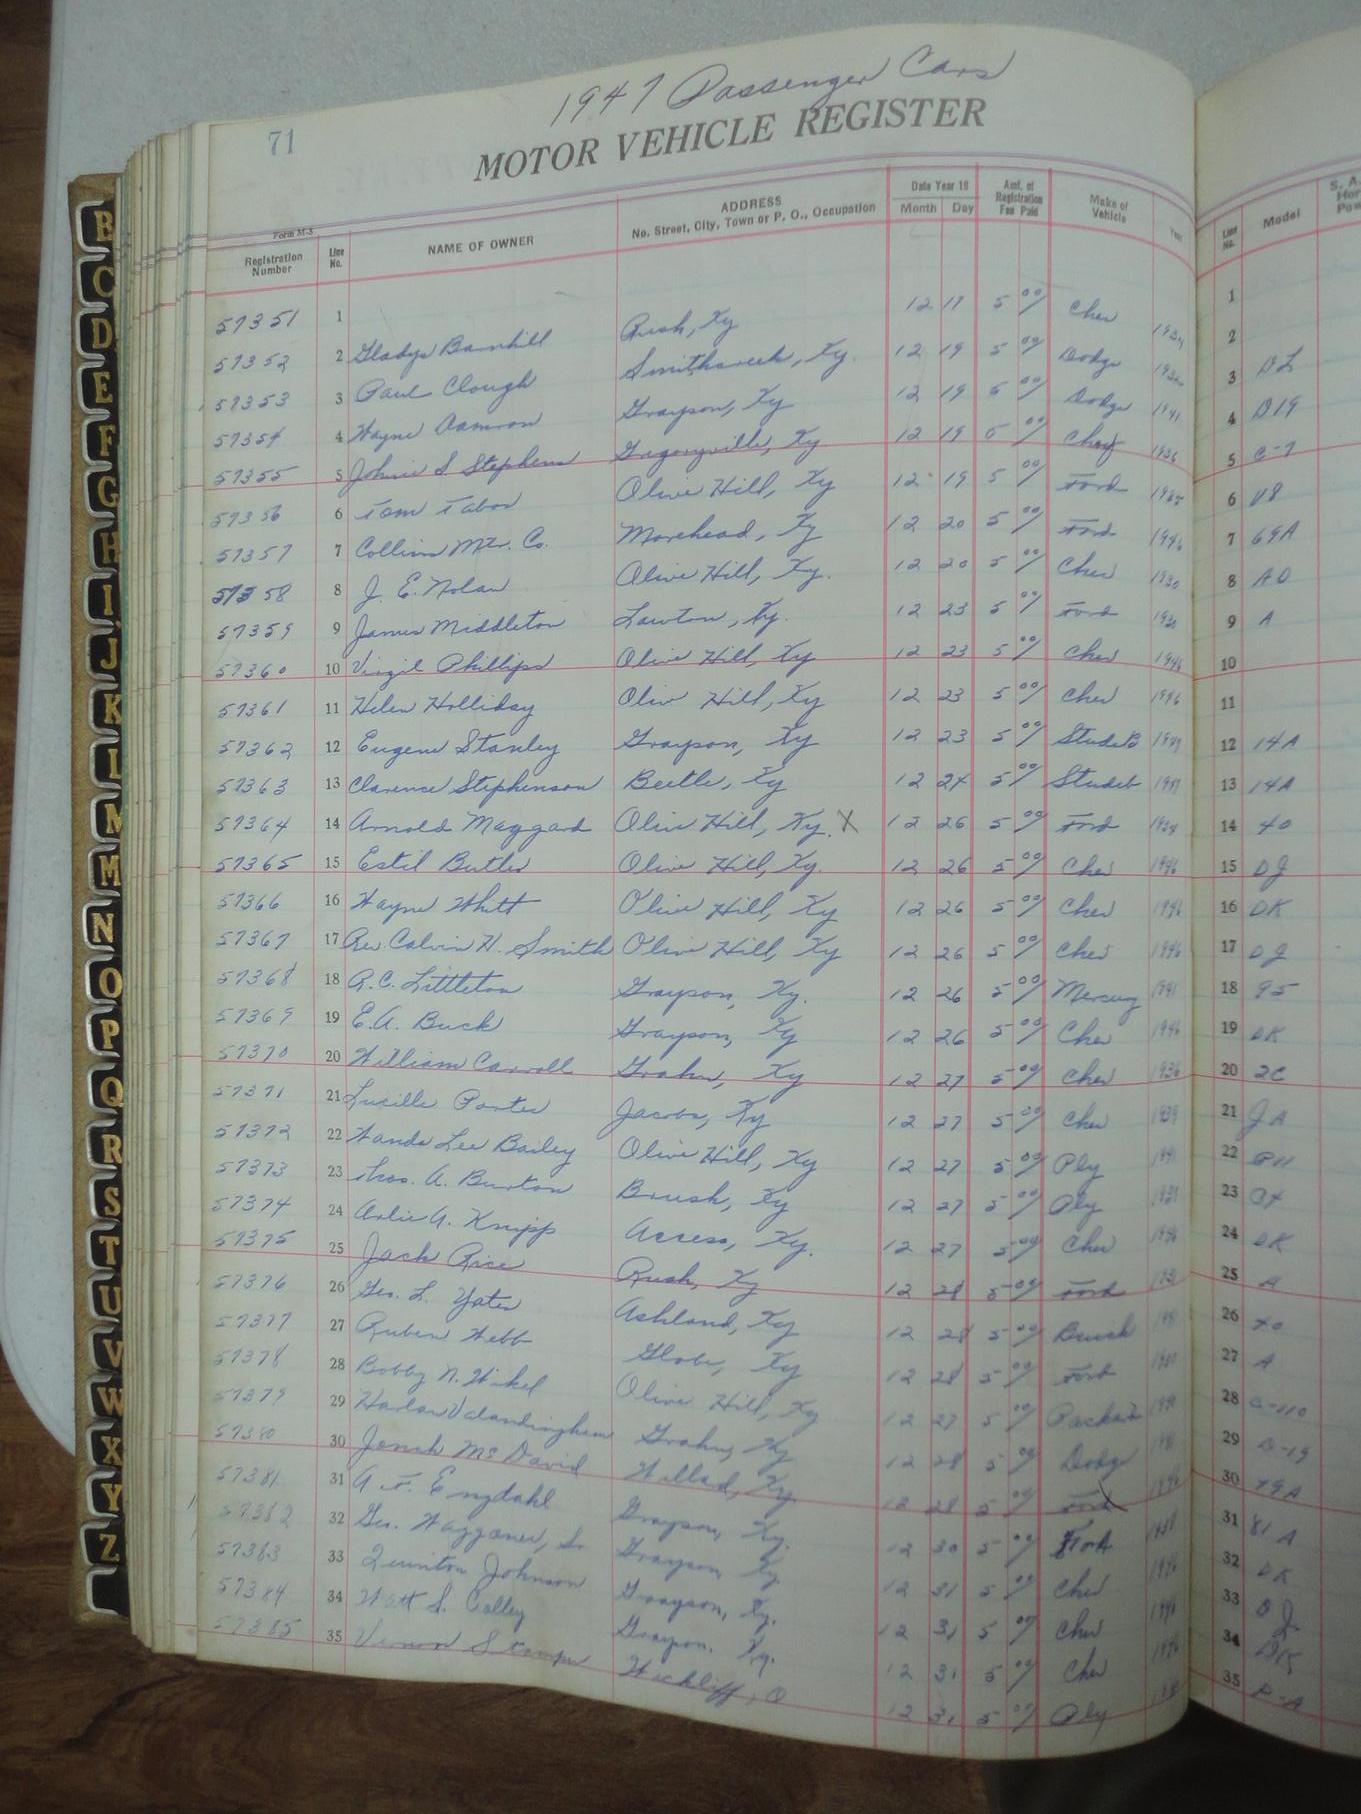 1947 Passenger Cars
71
MOTOR VEHICLE REGISTER
Form M-3
Registration Number Line No. NAME OF OWNER ADDRESS No. Street, City, Town or P. O., Occupation Date Year 19 Month Day Amt. of Registration Fee Paid Make of Vehicle Year Line No. Model S. A.
57351 1 Gladys Barnhill Rush, Ky 12 17 5 00 Chev 1
57352 2 Paul Clough Smithscreek, Ky. 12 19 5 00 Dodge 2
57353 3 Wayne Damron Grayson, Ky 12 19 5 00 Dodge 1941 3 DL
57354 4 Johnie S Stephens Gregoryville, Ky 12 19 5 00 1936 4 D19
57355 5 Tom Tabor Olive Hill, Ky 12 19 5 00 Ford 5 C-7
57356 6 Collins Mtr. Co. Morehead, Ky 12 20 5 00 Ford 1946 6 V8
57357 7 J. E. Nolan Olive Hill, Ky. 12 20 5 00 Chev 1930 7 69A
57358 8 James Middleton Lawton, Ky. 12 23 5 00 Ford 1930 8 AD
57359 9 Virgil Phillips Olive Hill, Ky 12 23 5 00 Chev 1946 9 A
57360 10 Helen Holliday Oliv Hill, Ky 12 23 5 00 Chev 1946 10
57361 11 Eugene Stanley Grayson, Ky 12 23 5 00 StudeB 11
57362 12 Clarence Stephenson Beetle, Ky 12 24 5 00 Studeb 12 14A
57363 13 Arnold Maggard Olive Hill, Ky. X 12 26 5 00 Ford 13 14A
57364 14 Estil Butler Olive Hill, Ky. 12 26 5 00 Chev 1946 14 40
57365 15 Wayne Whitt Olive Hill, Ky 12 26 5 00 Chev 1946 15 DJ
57366 16 Rev Calvin H. Smith Olive Hill, Ky 12 26 5 00 Chev 1946 16 DK
57367 17 R.C. Littleton Grayson, Ky. 12 26 5 00 Mercury 1941 17 DJ
57368 18 E.A. Buck Grayson, Ky 12 26 5 00 Chev 1946 18 95
57369 19 William Carroll Grahn, Ky 12 27 5 00 Chev 1936 19 DK
57370 20 Lucille Porter Jacobs, Ky 12 27 5 00 Chev 1939 20 2C
57371 21 Wanda Lee Bailey Olive Hill, Ky 12 27 5 00 Ply 1941 21 JA
57372 22 Thos. A. Burton Brush, Ky 12 27 5 00 Ply 22 P11
57373 23 Arlie A. Knipp Access, Ky. 12 27 5 00 Chev 1946 23
57374 24 Jack Rice Rush, Ky 12 28 5 00 Ford 1931 24 DK
57375 25 Geo. L. Yates Ashland, Ky 12 28 5 00 Buick 25 A
57376 26 Ruben Webb Globe, Ky 12 28 5 00 Ford 26 40
57377 27 Bobby N. Hickel Olive Hill, Ky 12 27 5 00 Packard 27 A
57378 28 Harlan Valandingham Grahn, Ky 12 28 5 00 Dodge 28 C-110
57379 29 Jonah McDavid Willard, Ky 12 28 5 00 Ford 29 D-19
57380 30 A. F. Engdahl Grayson, Ky. 12 30 5 00 Ford 30 79A
57381 31 Geo. Waggoner, Sr. Grayson Ky 12 31 5 00 Chev 31 81A
57382 32 Quinton Johnson Grayson, Ky. 12 31 5 00 Chev 32 DK
57383 33 Watt S. Colley Grayson, Ky. 12 31 5 00 Chev 33 DJ
57384 34 Vernon Stamper Wickliff, O 12 31 5 00 Ply 34 DK
57385 35 35 P-A
B
C
D
E
F
G
H
I
J
K
L
M
M
N
O
P
Q
R
S
T
U
V
W
X
Y
Z